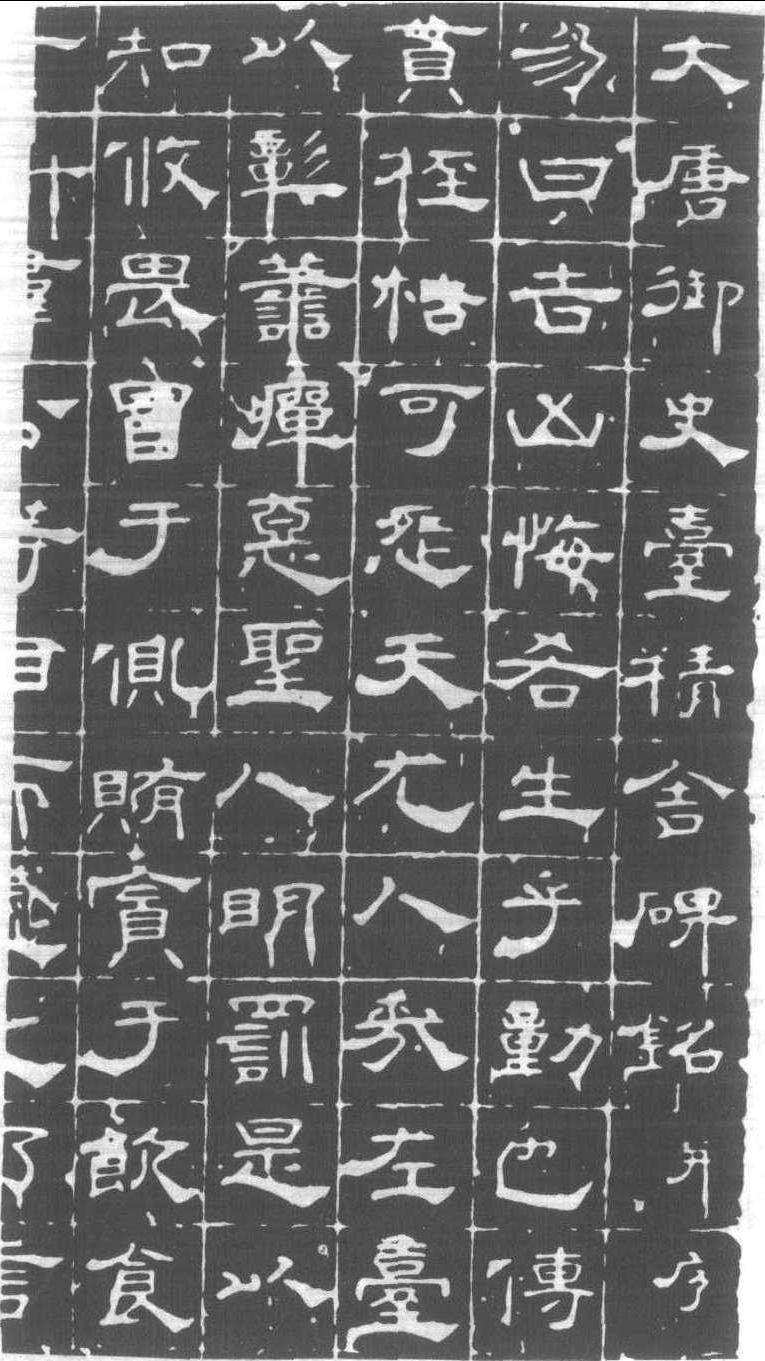 大唐御史臺精舍碑銘并序
易曰吉凶悔吝生乎動也傳
貫桎梏可怨天尤人哉左臺
以彰譱癉惡聖人明罰是以
知攸畏冒于貨賄貪于飲食